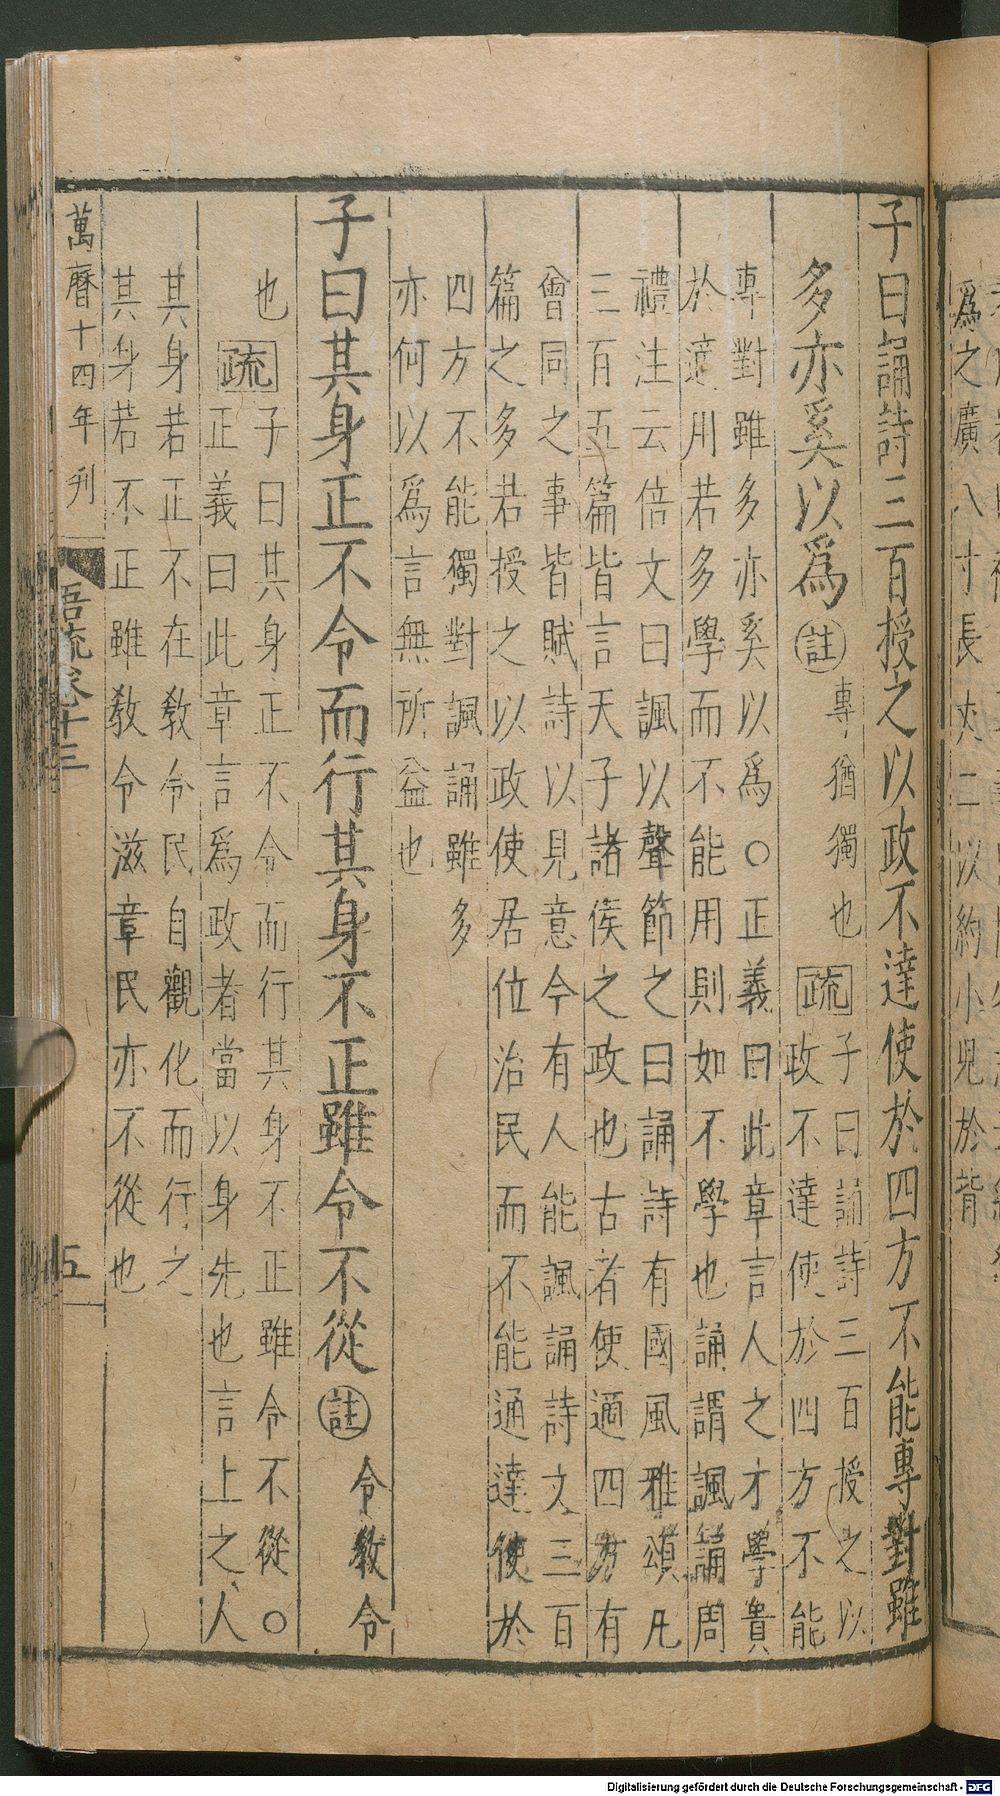 爲之廣八寸長丈二以約小兒於背
子曰誦詩三百授之以政不達使於四方不能專對雖
多亦奚以爲註專猶獨也疏子曰誦詩三百授之以
政不達使於四方不能
專對雖多亦奚以爲○正義曰此章言人之才學貴
於適用若多學而不能用則如不學也誦謂諷誦周
禮注云倍文曰諷以聲節之曰誦詩有國風雅頌凡
三百五篇皆言天子諸侯之政也古者使適四方有
會同之事皆賦詩以見意今有人能諷誦詩文三百
篇之多若授之以政使居位治民而不能通達使於
四方不能獨對諷誦雖多
亦何以爲言無所益也
子曰其身正不令而行其身不正雖令不從註令教令
也疏子曰其身正不令而行其身不正雖令不從○
正義曰此章言爲政者當以身先也言上之人
其身若正不在教令民自觀化而行之
其身若不正雖教令滋章民亦不從也
萬曆十四年刊
語疏卷十三
五
Digitalisierung gefördert durch die Deutsche Forschungsgemeinschaft - DFG